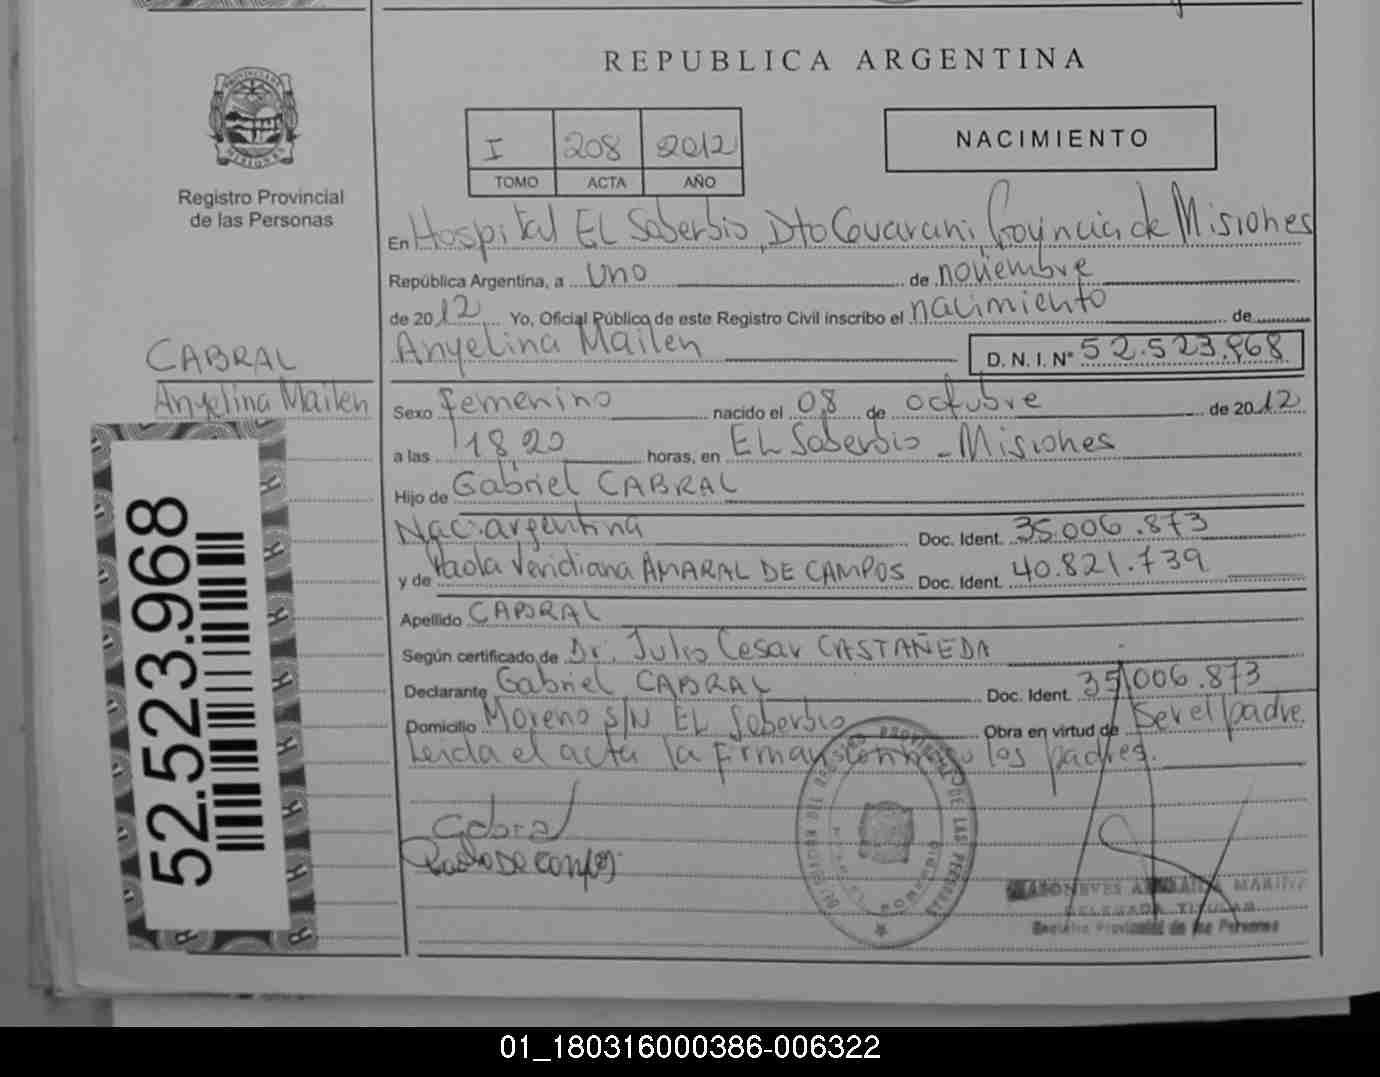 REPUBLICA ARGENTINA
PROVINCIA DE MISIONES
Registro Provincial
de las Personas
I 208 2012
TOMO ACTA AÑO
NACIMIENTO
En Hospital EL Soberbio, Dto Guarani, Provincia de Misiones
República Argentina, a uno de noviembre
de 2012 Yo, Oficial Público de este Registro Civil inscribo el nacimiento de
Anyelina Mailen D. N. I. Nº 52.523.968
CABRAL
Anyelina Mailen
Sexo femenino nacido el 08 de octubre de 2012
a las 18,20 horas, en EL Soberbio - Misiones
Hijo de Gabriel CABRAL
Nac. argentina Doc. Ident. 35.006.873
y de Paola Veridiana AMARAL DE CAMPOS Doc. Ident. 40.821.739
Apellido CABRAL
Según certificado de Dr. Julio Cesar CASTAÑEDA
Declarante Gabriel CABRAL Doc. Ident. 35.006.873
Domicilio Moreno S/N EL Soberbio Obra en virtud de Ser el padre.
Leida el acta la firman conmigo los padres.
52.523.968
Cabral
Paola De Campos
DELEGADA TITULAR
Registro Provincial de las Personas
01_180316000386-006322